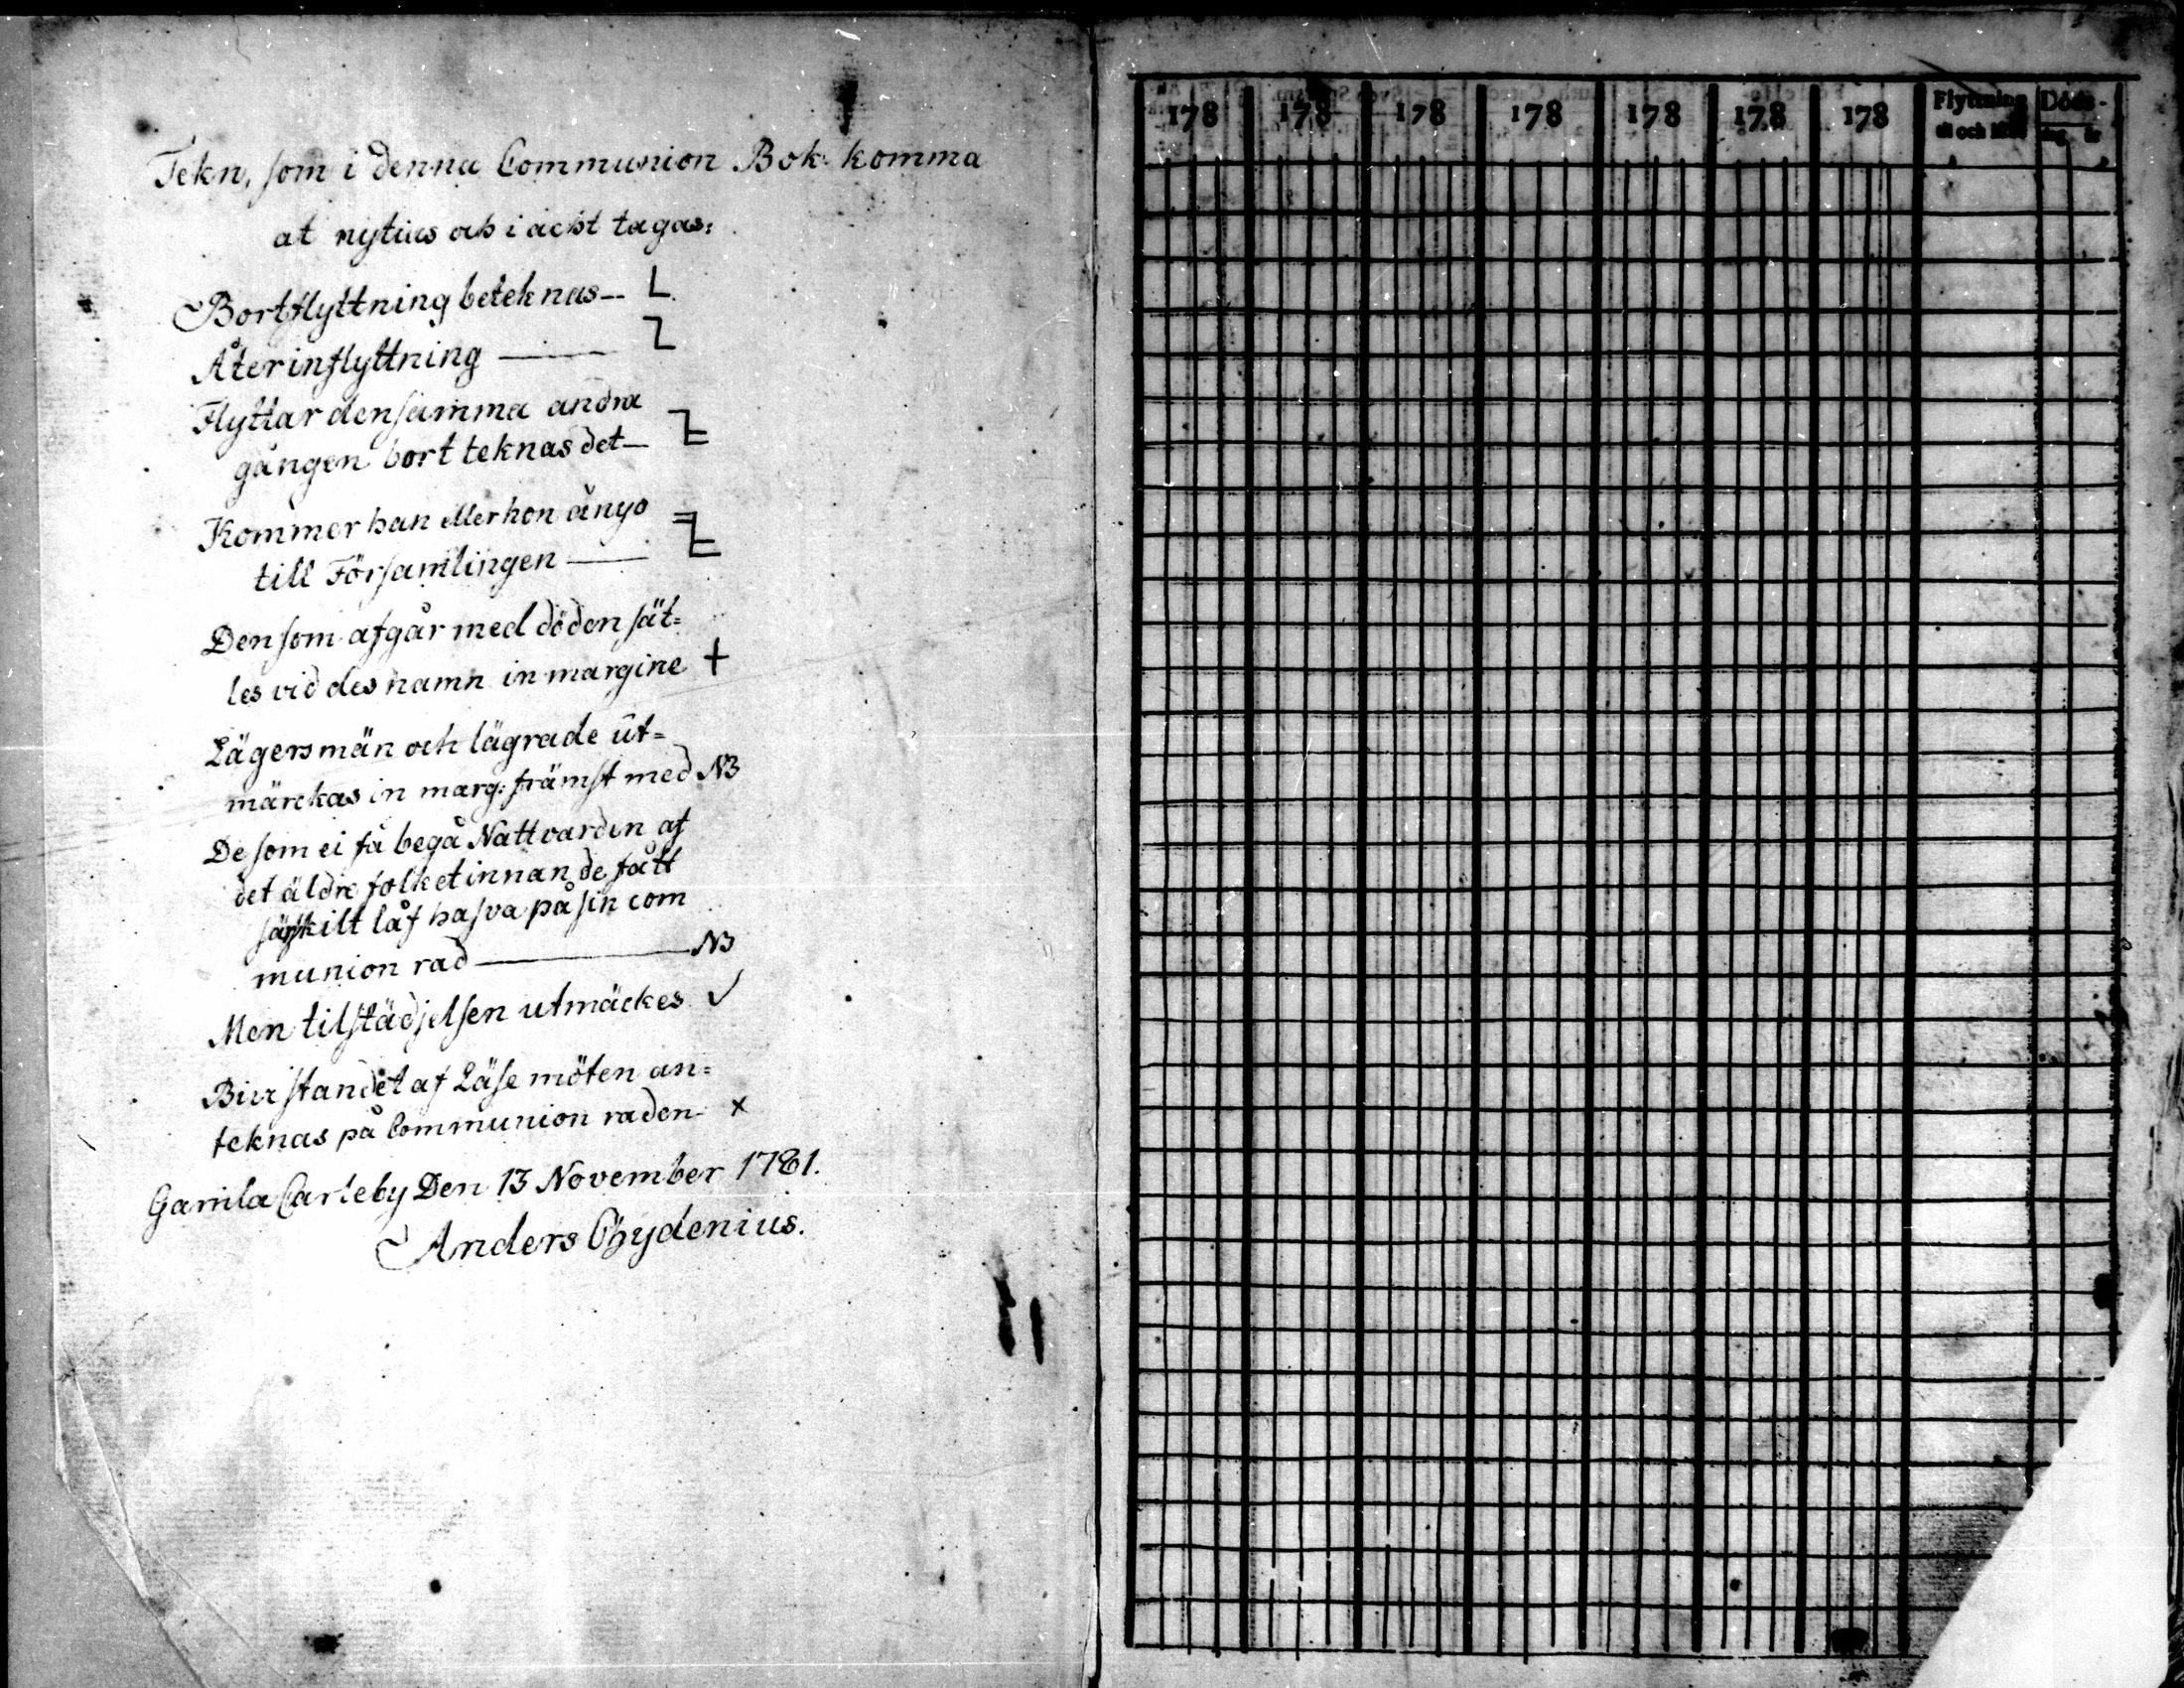 Tekn, som i denna Communion Bok komma
at nytias och i acht tagas:
Bortflyttning beteknas -- L
Återinflyttning
Flyttar densamma andra
gången bort teknas det
Kommer han eller hon ånyo
till Församlingen
Den som afgår med döden sät=
les vid des namn in margine +
Lägersmän och lägrade ut=
märckas in marg: främst med NB
De som ei få begå Nattvarden af
det äldre folket innan de fått
särskilt låf hafva på sin com
munion rad NB
Men tilstädjelsen utmäckes ✓
Bivistandet af Läse möten an=
teknas på Communion raden x
Gamla Carleby Den 13 November 1781.
Anders Chydenius.
178 178 178 178 178 178 178 Flyttning Döds-
ut och